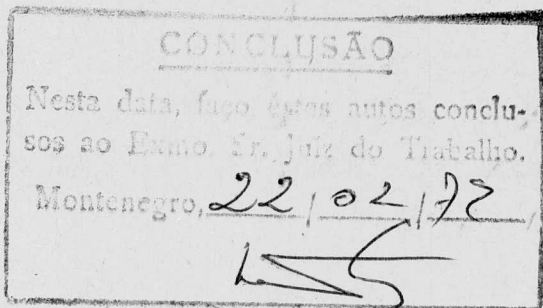 CONCLUSÃO
Nesta data, faço êstes autos conclu-
sos ao Exmo. Sr. Juiz do Trabalho.
Montenegro, 22 / 02 / 72